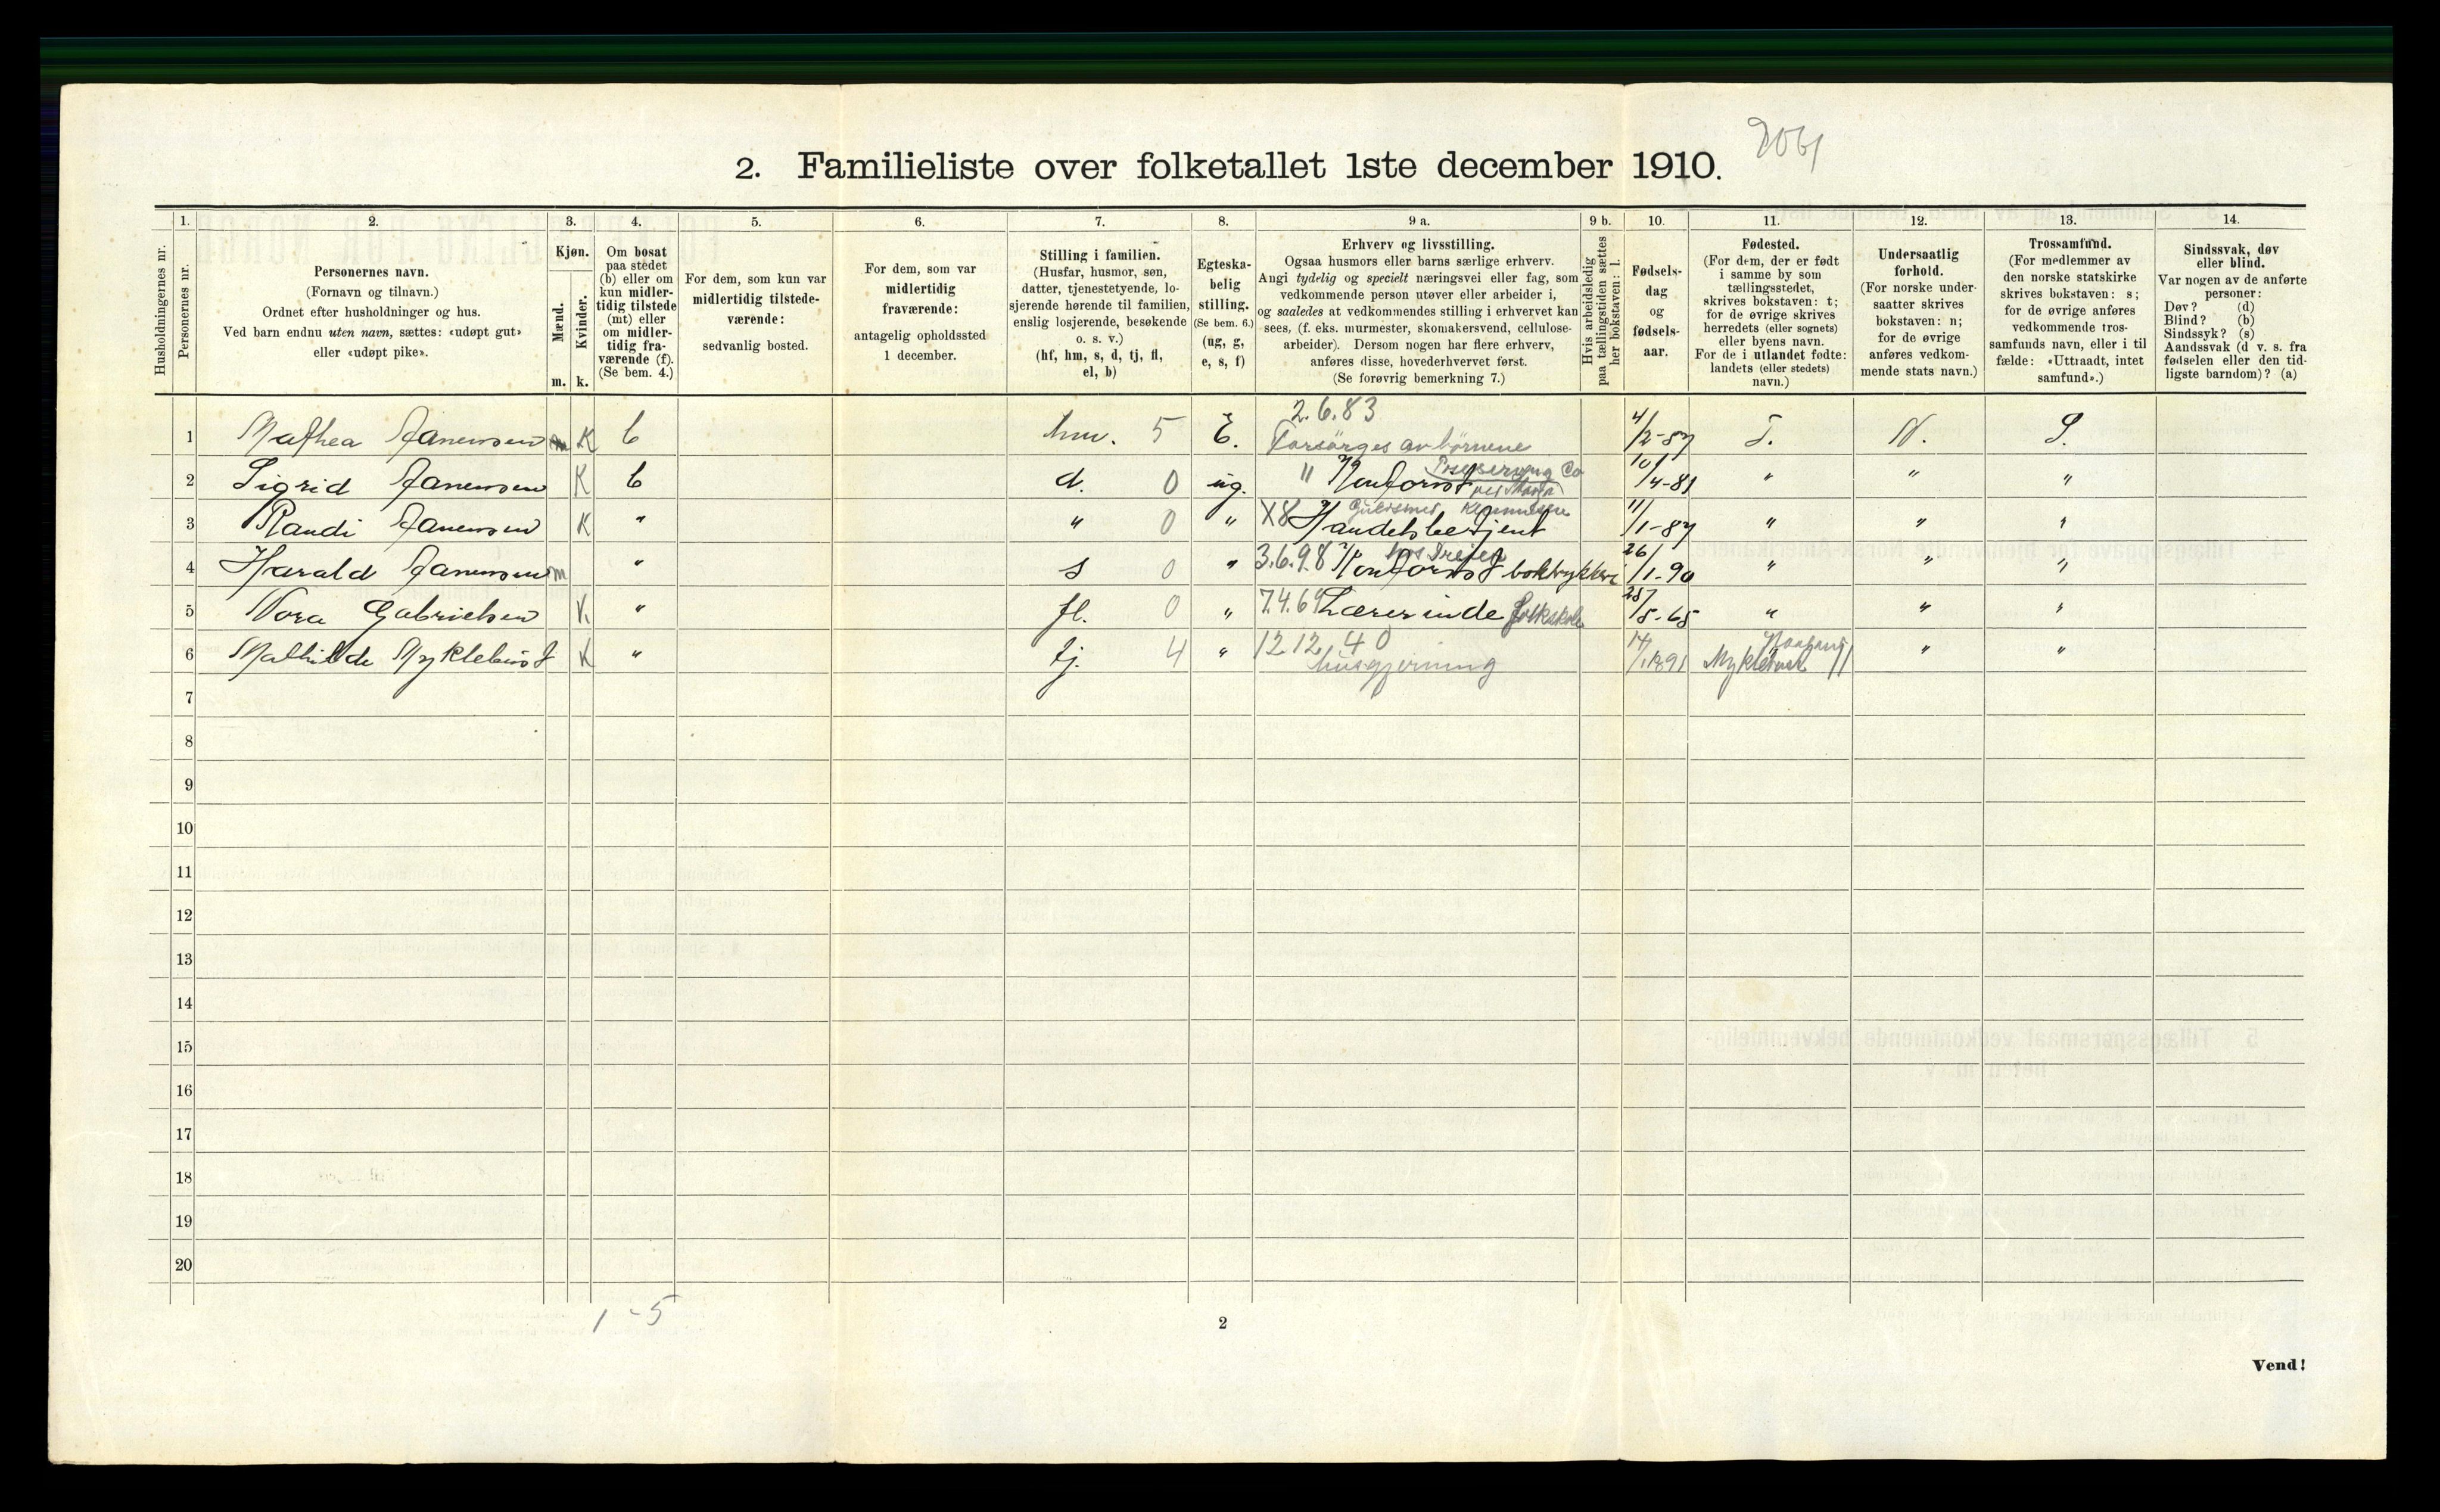 2061
2. Familieliste over folketallet 1ste december 1910.
Husholdningernes nr.
1.
Personernes nr.
2.
Personernes navn.
(Fornavn og tilnavn.)
Ordnet efter husholdninger og hus.
Ved barn endnu uten navn, sættes: «udøpt gut»
eller «udøpt pike».
3.
Kjøn.
Mænd.
Kvinder.
m. k.
4.
Om bosat
paa stedet
(b) eller om
kun midler-
tidig tilstede
(mt) eller
om midler-
tidig fra-
værende (f).
(Se bem. 4.)
5.
For dem, som kun var
midlertidig tilstede-
værende:
sedvanlig bosted.
6.
For dem, som var
midlertidig
fraværende:
antagelig opholdssted
1 december.
7.
Stilling i familien.
(Husfar, husmor, søn,
datter, tjenestetyende, lo-
sjerende hørende til familien,
enslig losjerende, besøkende
o. s. v.)
(hf, hm, s, d, tj, fl,
el, b)
8.
Egteska-
belig
stilling.
(Se bem. 6.)
(ug, g,
e, s, f)
9 a.
Erhverv og livsstilling.
Ogsaa husmors eller barns særlige erhverv.
Angi tydelig og specielt næringsvei eller fag, som
vedkommende person utøver eller arbeider i,
og saaledes at vedkommendes stilling i erhvervet kan
sees, (f. eks. murmester, skomakersvend, cellulose-
arbeider). Dersom nogen har flere erhverv,
anføres disse, hovederhvervet først.
(Se forøvrig bemerkning 7.)
9 b.
Hvis arbeidsledig
paa tællingstiden sættes
her bokstaven: l.
10.
Fødsels-
dag
og
fødsels-
aar.
11.
Fødested.
(For dem, der er født
i samme by som
tællingsstedet,
skrives bokstaven: t;
for de øvrige skrives
herredets (eller sognets)
eller byens navn.
For de i utlandet fødte:
landets (eller stedets)
navn.)
12.
Undersaatlig
forhold.
(For norske under-
saatter skrives
bokstaven: n;
for de øvrige
anføres vedkom-
mende stats navn.)
13.
Trossamfund.
(For medlemmer av
den norske statskirke
skrives bokstaven: s;
for de øvrige anføres
vedkommende tros-
samfunds navn, eller i til
fælde: «Uttraadt, intet
samfund».)
14.
Sindssvak, døv
eller blind.
Var nogen av de anførte
personer:
Døv? (d)
Blind? (b)
Sindssyk? (s)
Aandssvak (d v. s. fra
fødselen eller den tid-
ligste barndom)? (a)
2.6.83
1 Mathea Janensen K b hm. 5 E. Forsörges av börnene 4/2-57 T. N. S.
2 Sigrid Janensen K b d. 0 ug. " Kontorist 10/4-81 " " "
3 Randi Janensen K " " 0 " X8 Handelsbetjent 11/1-87 " " "
4 Harald Janensen m " s 0 " 3.6.98 Kontorist boktrykkeri 26/1-90 " " "
5 Nora Gabrielsen K. " fl. 0 " 7.4.69 Lærerinde folkskole 28/5-65 " " "
6 Mathilde Myklebust K " tj. 4 " 12 12 40 husgjerning 14/1.1891 " "
7
8
9
10
11
12
13
14
15
16
17
18
19
20
1-5
2
Vend!